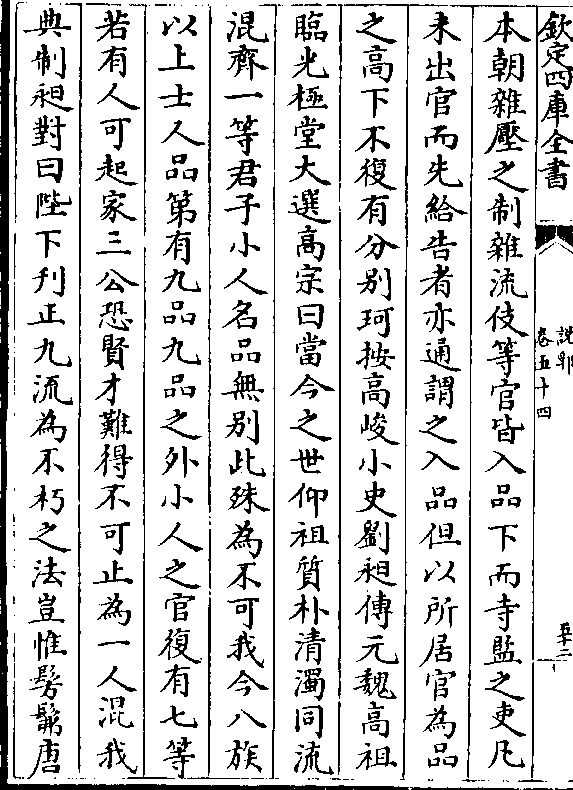 欽定四庫全書
說郛
卷五十四
本朝雜壓之制雜流伎等官皆入品下而寺監之吏凡
未出官而先給告者亦通謂之入品但以所居官為品
之高下不復有分别珂按高峻小史劉昶傳元魏高祖
臨光極堂大選高宗曰當今之世仰祖質朴清濁同流
混齊一等君子小人名品無别此殊為不可我今八族
以上士人品第有九品九品之外小人之官復有七等
若有人可起家三公恐賢才難得不可止為一人混我
典制昶對曰陛下刋正九流為不朽之法豈惟髣髴唐